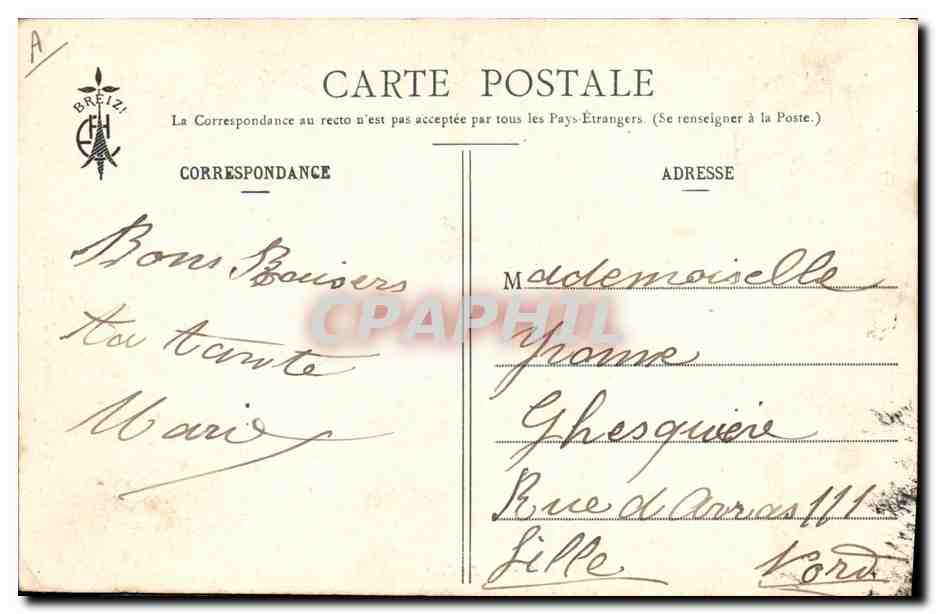 A
BREIZ!
CARTE POSTALE
La Correspondance au recto n'est pas acceptée par tous les Pays-Étrangers. (Se renseigner à la Poste.)
CORRESPONDANCE
Bons Baisers
ta tante
Marie
ADRESSE
Mademoiselle
Yvonne
Ghesquière
Rue d Arras 111
Lille Nord
CPAPHIL